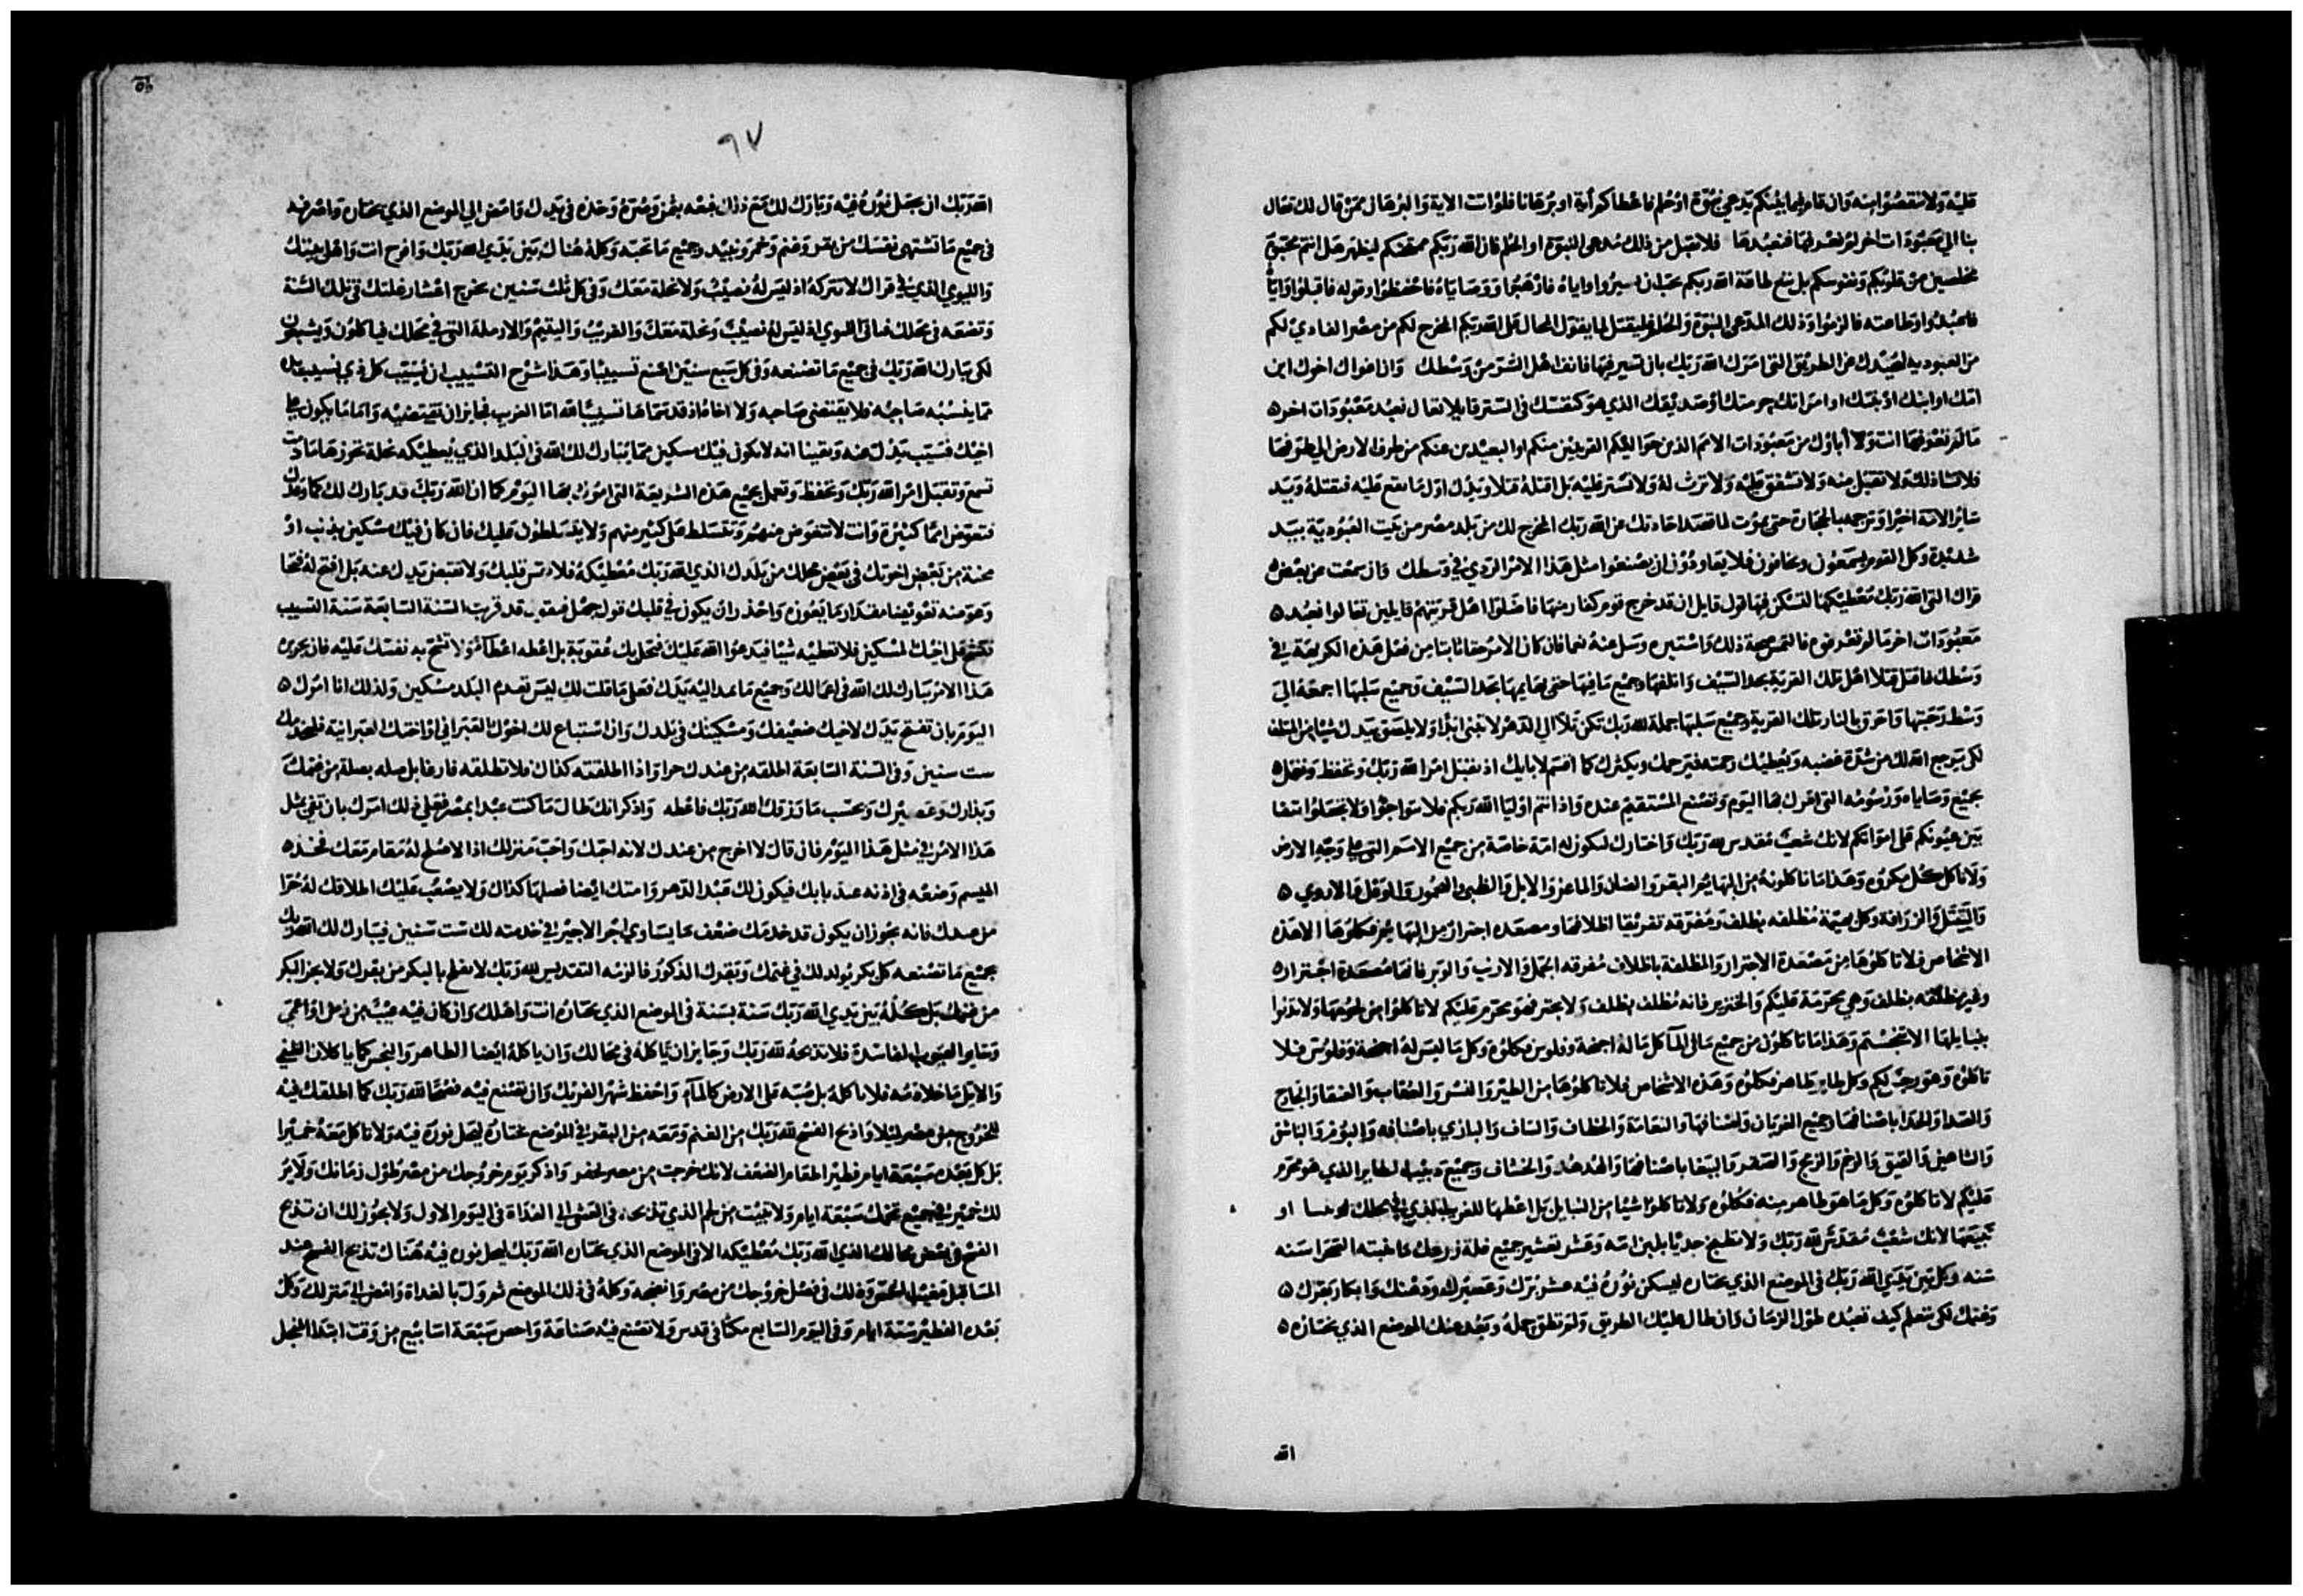 عليه ولا تنقصوا منه وان قام فيما بينكم مدعي نبوة او حلم فاعطاكم آية او برهانا فلو اتت الاية والبرهان ممن قال لك تعال
بنا الى معبودات اخر لم تعرفها فنعبدها فلا تقبل من ذلك مدعى النبوة او الحلم فان الله ربكم ممتحنكم ليظهر هل انتم محبون
مخلصين من قلوبكم ونفوسكم بل تتبع طاعة الله ربكم سيروا واياه فارهبوا ووصاياه فاحفظوا وقوله فاقبلوا واياه
فاعبدوا وطاعته فالزموا وذلك المدعى النبوة والحلم فليقتل لما يقول المحال على الله ربكم المخرج لكم من مصر الفادي لكم
من العبودية ليصدك عن الطريق التى امرك الله ربك بان تسير فيها فانف اهل الشر من وسطك وان اغواك اخوك ابن
امك او ابنك او بنتك او امراتك حرمتك او صديقك الذي هو كنفسك فى الستر قايلا تعال نعبد معبودات اخر
ما لم تعرفها انت ولا أباؤك من معبودات الامم الذين حواليكم القريبين منكم او البعيدين عنكم من طرف الارض الى طرفها
فلا تشا ذلك ولا تقبل منه ولا تشفق عليه ولا ترث له ولا تستر عليه بل اقتله قتلا ويدك اول ما تقع عليه فتقتله وبيد
ساير الامة اخيرا وترجمه بالحجارة حتى يموت لما قصد ازاحتك عن الله ربك المخرج لك من بلد مصر من بيت العبودية بيد
شديدة وكل القوم يسمعون ويخافون فلا يعاودون ان يصنعوا مثل هذا الامر الردي في وسطك وان سمعت عن بعض
قراك التى الله ربك معطيكها لتسكن فيها قول قايل ان قد خرج قوم كفار منها فاضلوا اهل قريتهم قايلين تعالوا نعبد
معبودات اخر ما لم تعرفوه فالتمس صحة ذلك واستبره وسل عنه نعما فان كان الامر حقا ثابتا من فعل هذه الكريهة في
وسطك فاقتل قتلا اهل تلك القرية بحد السيف واتلفها وجميع ما فيها حتى بهايمها بحد السيف وجميع سلبها اجمعه الى
وسط رحبتها واحرق بالنار تلك القرية وجميع سلبها جملة لله ربك تكن تلا الى الدهر لا تبنى ابدا ولا يلصق بيدك شيئا من التلف
لكى يرجع الله لك من شدة غضبه ويعطيك رحمته فيرحمك ويكثرك كما اقسم لابايك اذ تقبل امر الله ربك وتحفظ وتعمل
بجميع وصاياه ورسومه التى امرك بها اليوم وتصنع المستقيم عنده واذ انتم اوليا الله ربكم فلا تتوا جوا ولا تجعلوا نتفا
بين عيونكم على امواتكم لانك شعب مقدس لله ربك واختارك لتكون له امة خاصة من جميع الامم التى على وجه الارض
ولا تاكل كل مكروه وهذا ما تاكلونه من البهايم البقر والضان والماعز والابل والظبى واليحمور والوعل والاروي
والتيتل والزرافة وكل بهيمة مظلفه بظلف ومفرقه تفريقا اظلافها ومصعده اجترار من البهايم فكلوها الا هذه
الاشخاص فلا تاكلوها من مصعدة الاجترار والمظلفة باظلاف مفرقه الجمل والارنب والوبر فانها مصعدة اجترار
وغير مظلفه بظلف وهي محرمة عليكم والخنزير فانه مظلف بظلف ولا يجتر فهو محرم عليكم لا تاكلوا من لحومها ولا تدنوا
بنبايلها الا تنجستم وهذا ما تاكلون من جميع ما فى المآ كل ما له اجنحة وفلوس فكلوه وكل ما ليس له اجنحة وفلوس فلا
تاكلوه وهو رجس لكم وكل طاير طاهر فكلوه وهذه الاشخاص فلا تاكلوها من الطير والنسر والعقاب والعنقا والخارج
والصدا والحدا باصنافها وجميع الغربان واصنافها والنعامة والخطاف والساف والبازي باصنافه والبوم والباشق
والشاهين والقيق والرخم والزمج والصقر والببغا باصنافها والهدهد والخشاف وجميع دبيب الطاير الذي هو محرم
عليكم لا تاكلوه وكل ما هو طاهر منه فكلوه ولا تاكلوا شيئا من النبايل بل اعطها للغريب الذي في محلك او
تبيعها لانك شعب مقدس لله ربك ولا تطبخ جديا بلبن امه وعشر تعشير جميع غلة زرعك ما انبته الصحرا سنه
سنه وكل بين يدي الله ربك فى الموضع الذي يختاره ليسكن نوره فيه عشر برك وعصيرك ودهنك وابكار بقرك
وغنمك لكى تتعلم كيف تعبده طول الزمان وان طال عليك الطريق ولم تطق حمله وبعد عنك الموضع الذي يختاره
الله
٩٧
الله ربك ان يجعل نوره فيه وبارك لك مع ذلك فبعه بثمن وصره وخذه فى يدك وامض الى الموضع الذي يختاره واصرفه
فى جميع ما تشتهى نفسك من بقر وغنم وخمر ونبيذ وجميع ما تحبه وكله هناك بين يدي الله ربك وافرح انت واهل بيتك
والليوي الذي في قراك لا تتركه اذ ليس له نصيب ولا نحلة معك وفى كل ثلث سنين تخرج اعشار غلتك فى تلك السنة
وتضعه فى محلك فياتى الليوي اذ ليس له نصيب ونحلة معك والغريب واليتيم والارملة التى في محلك فياكلون ويشبعون
لكى يبارك الله ربك فى جميع ما تصنعه وفى كل سبع سنين اصنع تسييبا وهذا شرح التسييب ان يسيب كل ذي نسيب ماله
مما ينسبه صاحبه فلا يقتضى صاحبه ولا اخاه اذ قد سماها تسييبا لله اما الغريب فجايز ان تقتضيه واما ما يكون على
اخيك فسيب يدك عنه ويقينا انه لا يكون فيك مسكين مما يبارك لك الله فى البلد الذي يعطيكه نحلة تحوزها ما دمت
تسمع وتقبل امر الله ربك وتحفظ وتعمل بجميع هذه الشريعة التى امرك بها اليوم كما ان الله ربك قد بارك لك كما وعدك
فتعوض امما كثيرة وانت لا تتعوض منهم وتتسلط على كثير منهم ولا يتسلطون عليك فان كان فيك مسكين بذنب او
محنة من بعض اخوتك فى بعض محالك من بلدك الذي الله ربك معطيكه فلا تقس قلبك ولا تقبض يدك عنه بل افتح له فتحا
وعوضه تعويضا مقدار ما يعوزه واحذر ان يكون في قلبك قول جهل فتقول قد قربت السنة السابعة سنة التسييب
فتشح على اخيك المسكين فلا تعطيه شيئا فيدعوا الله عليك فتحل بك عقوبة بل اعطه اعطآء ولا تشح به نفسك عليه فان بجزى
هذا الامر يبارك لك الله فى اعمالك وجميع ما تمد اليه يدك فعلى ما قلت لك ليس تعدم البلد مسكين ولذلك انا امرك
اليوم بان تفتح يدك لاخيك ضعيفك ومسكينك فى بلدك وان استباع لك اخوك العبراني او اختك العبرانية فليخدمك
ست سنين وفى السنة السابعة اطلقه من عندك حرا واذا اطلقته كذاك فلا تطلقه فارغا بل صله بصلة من غنمك
وبيدرك وعصيرك وبحسب ما رزقك الله ربك فاعطه واذكر انك طال ما كنت عبدا بمصر فعلى ذلك امرك بان تفي بمثل
هذا الامر في مثل هذا اليوم فان قال لا اخرج من عندك لانه احبك واحب منزلك اذ الاصلح له مقام معك فخذ
الميسم وضعه فى اذنه عند بابك فيكون لك عبد الدهر وامتك ايضا فصلها كذاك ولا يصعب عليك اطلاقك له حرا
من عندك فانه يجوز ان يكون قد خدمك ضعف ما يساوي اجر الاجير في خدمته لك ست سنين فيبارك لك الله ربك
بجميع ما تصنعه كل بكر يولد لك في غنمك وبقرك الذكور فالزمه التقديس لله ربك لا تفلح بالبكر من بقرك ولا تجز البكر
من غنمك بل كله بين يدي الله ربك سنة بسنة فى الموضع الذي يختاره انت واهلك وان كان فيه عيب من زمن او اعمى
وساير العيوب الفاسدة فلا تذبحه لله ربك وجايز ان تاكله فى محالك وان ياكله ايضا الطاهر والنجس كما ياكلان الظبي
والايل ما خلا دمه فلا تاكله بل صبه على الارض كالمآء واحفظ شهر الفريك وان تصنع فيه فصحا لله ربك كما اطلقك فيه
للخروج من مصر ليلا واذبح الفسح لله ربك من الغنم ومعه من البقر في الموضع يختاره ليجعل نوره فيه ولا تاكل معه خميرا
بل كل بعده سبعة ايام فطيرا طعام الضعف لانك خرجت من مصر بحفز واذكر يوم خروجك من مصر طول زمانك ولا ير
لك خمير في جميع تخمك سبعة ايام ولا تبيت من لحم الذي تذبحه فى العشى الى الغداة فى اليوم الاول ولا يجوز لك ان تذبح
الفسح فى بعض محالك الذي الله ربك معطيكه الا فى الموضع الذي يختاره الله ربك ليحل نوره فيه هناك تذبح الفسح عند
المسا قبل مغيب الشمس وذلك فى فصل خروجك من مصر وانضجه وكله فى ذلك الموضع ثم ول بالغداة وامض الى منزلك وكل
بعده الفطير ستة ايام وفى اليوم السابع مكثا فى قدس ولا تصنع فيه صناعة واحص سبعة اسابيع من وقت ابتدا المنجل